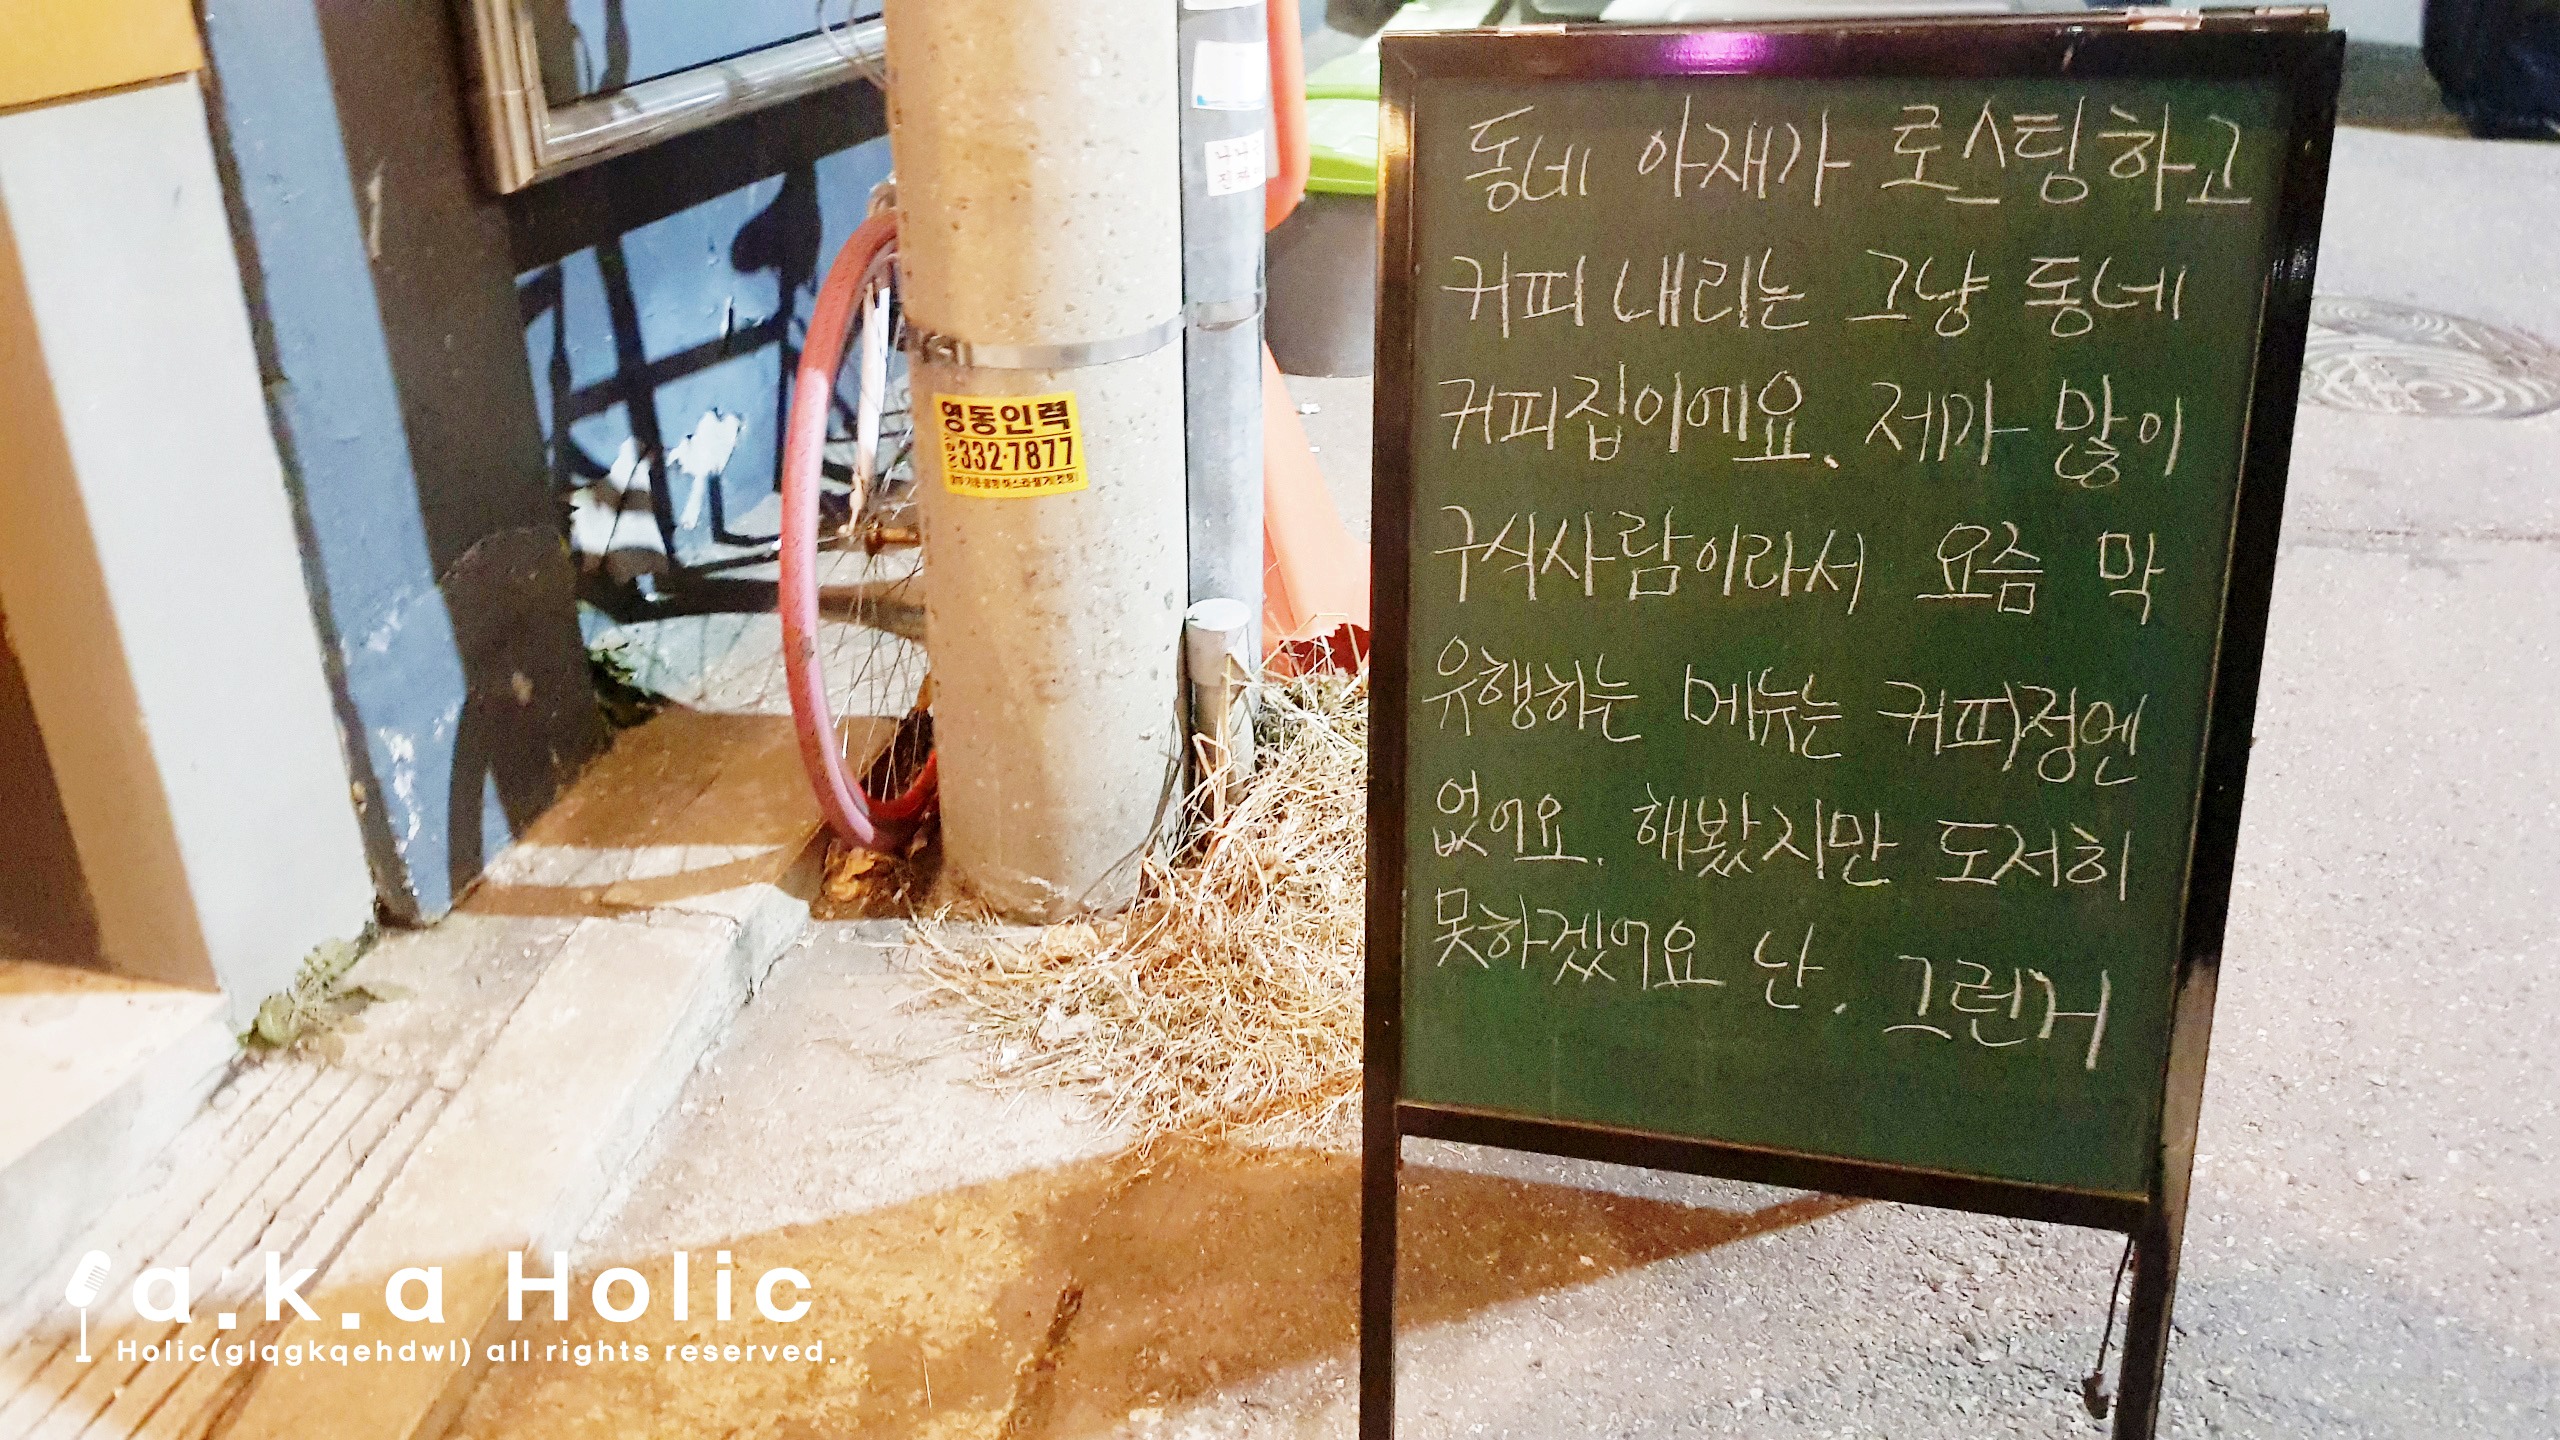 동네 아재가 로스팅하고
커피 내리는 그냥 동네
커피집이에요. 제가 많이
구식사람이라서 요즘 막
유행하는 메뉴는 커피정엔
없어요. 해봤지만 도저히
못하겠어요 난. 그런거
영동인력
332·7877
a.k.a Holic
Holic(glqgkqehdwl) all rights reserved.